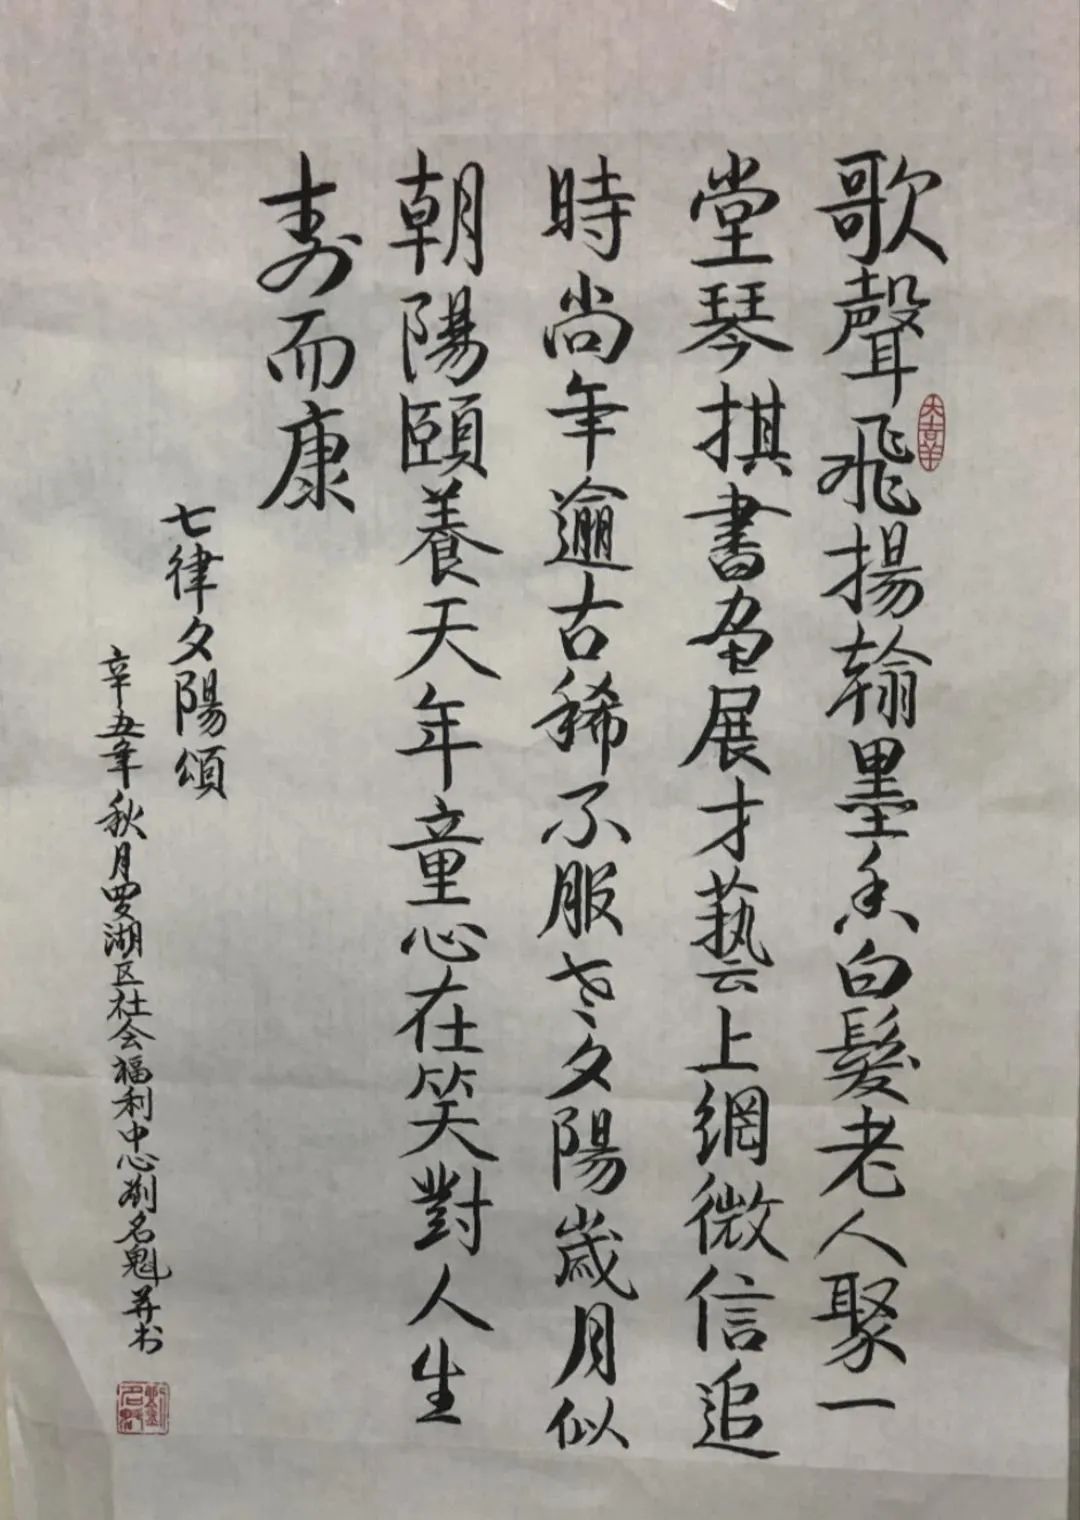 歌聲飛揚翰墨香白髮老人聚一
堂琴棋書畫展才藝上網微信追
時尚年逾古稀不服老夕陽歲月似
朝陽頤養天年童心在笑對人生
壽而康
七律夕陽頌
辛丑年秋月罗湖区社会福利中心刘名魁并书
大吉羊